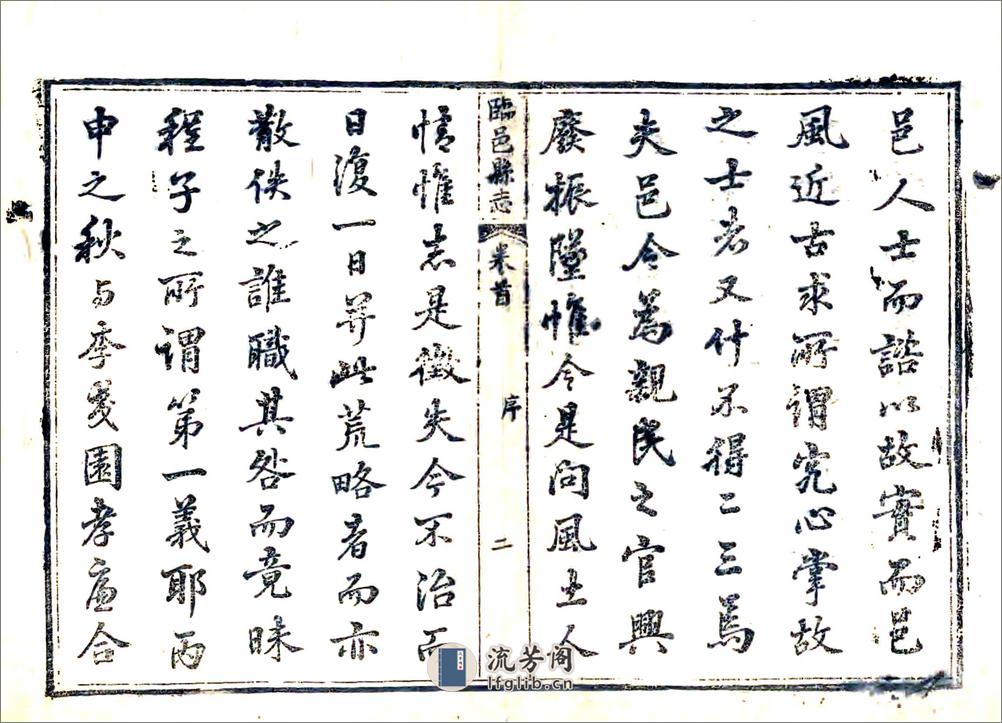 邑人士而諮以故實而邑
風近古求所謂究心掌故
之士者又什不得二三焉
夫邑令為親民之官興
廢振墜惟令是問風土人
臨邑縣志 卷首 序 二
情惟志是徵失今不治而
日復一日并此荒略者而亦
散佚之誰職其咎而竟昧
程子之所謂第一義耶丙
申之秋与李園孝廉合
流芳阁
lfglib.cn